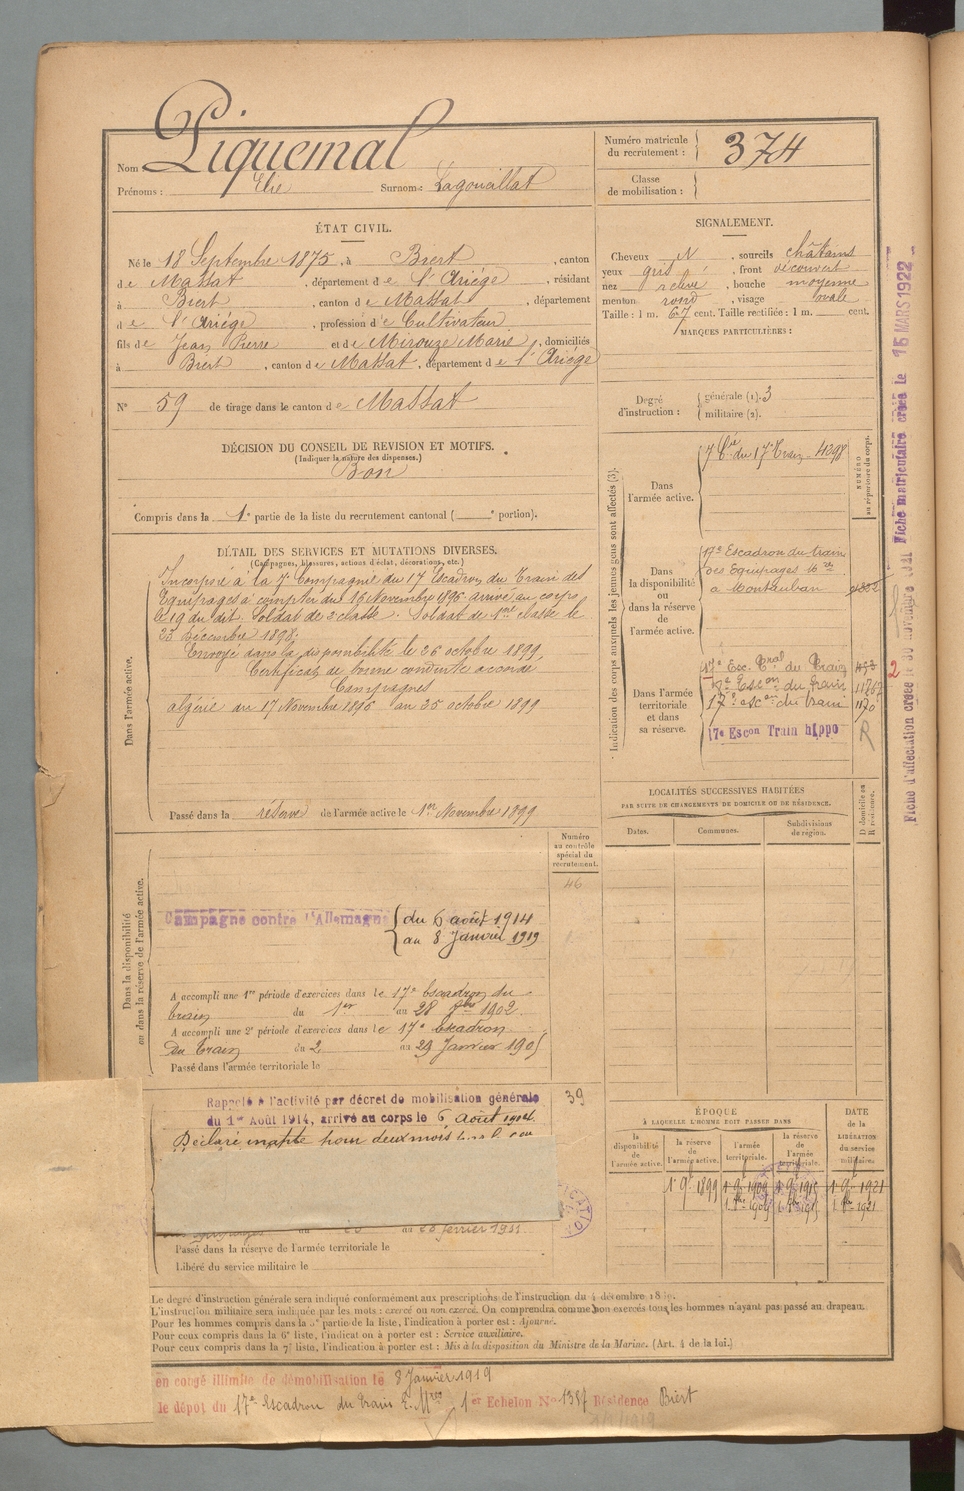 Nom : Piquemal
Prénoms : Elie Surnom : Lagouaillat
Numéro matricule du recrutement : 374
Classe de mobilisation :
ÉTAT CIVIL.
Né le 18 Septembre 1875, à Biert, canton
de Massat, département de l'Ariège, résidant
à Biert, canton de Massat, département
de l'Ariège, profession de Cultivateur
fils de Jean Pierre et de Mirouze Marie, domiciliés
à Biert, canton de Massat, département de l'Ariège
N° 59 de tirage dans le canton de Massat
SIGNALEMENT.
Cheveux N, sourcils châtains
yeux gris, front découvert
nez relevé, bouche moyenne
menton rond, visage ovale.
Taille : 1 m. 67 cent. Taille rectifiée : 1 m. cent.
MARQUES PARTICULIÈRES :
Degré d'instruction : générale (1). 3
militaire (2).
DÉCISION DU CONSEIL DE REVISION ET MOTIFS.
(Indiquer la nature des dispenses.)
Bon
Compris dans la 1e partie de la liste du recrutement cantonal ( e portion).
DÉTAIL DES SERVICES ET MUTATIONS DIVERSES.
(Campagnes, blessures, actions d'éclat, décorations, etc.)
Dans l'armée active.
Incorporé à la 7e Compagnie du 17 Escadron du Train des
Equipages à compter du 16 Novembre 1896 arrivé au corps
le 19 du dit. Soldat de 2e classe. Soldat de 1ere classe le
23 décembre 1898.
Envoyé dans la disponibilité le 26 octobre 1899.
Certificat de bonne conduite accordé
Campagnes
Algérie du 17 Novembre 1896 au 25 octobre 1899
Passé dans la réserve de l'armée active le 1er Novembre 1899
Indication des corps auxquels les jeunes gens sont affectés (3).
NUMÉRO au répertoire du corps.
Dans l'armée active.
7 Cie du 17 Train 4298
Dans la disponibilité ou dans la réserve de l'armée active.
17e Escadron du train
des Equipages
à Montauban
Dans l'armée territoriale et dans sa réserve.
17e Esc. Tral du Train
17e Escon du train
17e escon du train
17e Escon Train hippo
R
LOCALITÉS SUCCESSIVES HABITÉES
PAR SUITE DE CHANGEMENTS DE DOMICILE OU DE RÉSIDENCE.
Dates. Communes. Subdivisions de région. D domicile ou R résidence.
Dans la disponibilité ou dans la réserve de l'armée active.
Numéro au contrôle spécial du recrutement.
46
Campagne contre l'Allemagne du 6 août 1914
au 8 Janvier 1919
A accompli une 1re période d'exercices dans le 17e Escadron du
train du 1er au 28 1902.
A accompli une 2e période d'exercices dans le 17e Escadron
du Train du 2 au 29 Janvier 1905
Passé dans l'armée territoriale le
Rappelé à l'activité par décret de mobilisation générale
du 1er Août 1914, arrivé au corps le 6 août 1914.
39
Déclaré inapte pour deux mois
février 1911
Passé dans la réserve de l'armée territoriale le
Libéré du service militaire le
ÉPOQUE
À LAQUELLE L'HOMME DOIT PASSER DANS
la disponibilité de l'armée active.
la réserve de l'armée active.
l'armée territoriale.
la réserve de l'armée territoriale.
DATE de la LIBÉRATION du service militaire.
Le degré d'instruction générale sera indiqué conformément aux prescriptions de l'instruction du 4 décembre
L'instruction militaire sera indiquée par les mots : exercé ou non exercé. On comprendra comme non exercés tous les hommes n'ayant pas passé au drapeau.
Pour les hommes compris dans la 5e partie de la liste, l'indication à porter est : Ajourné.
Pour ceux compris dans la 6e liste, l'indication à porter est : Service auxiliaire.
Pour ceux compris dans la 7e liste, l'indication à porter est : Mis à la disposition du Ministre de la Marine. (Art. 4 de la loi.)
en congé illimité de démobilisation le 8 Janvier 1919
le dépôt du 17e Escadron du train 1er Echelon No 1387 Résidence Biert
Fiche matriculaire créée le 15 MARS 1922